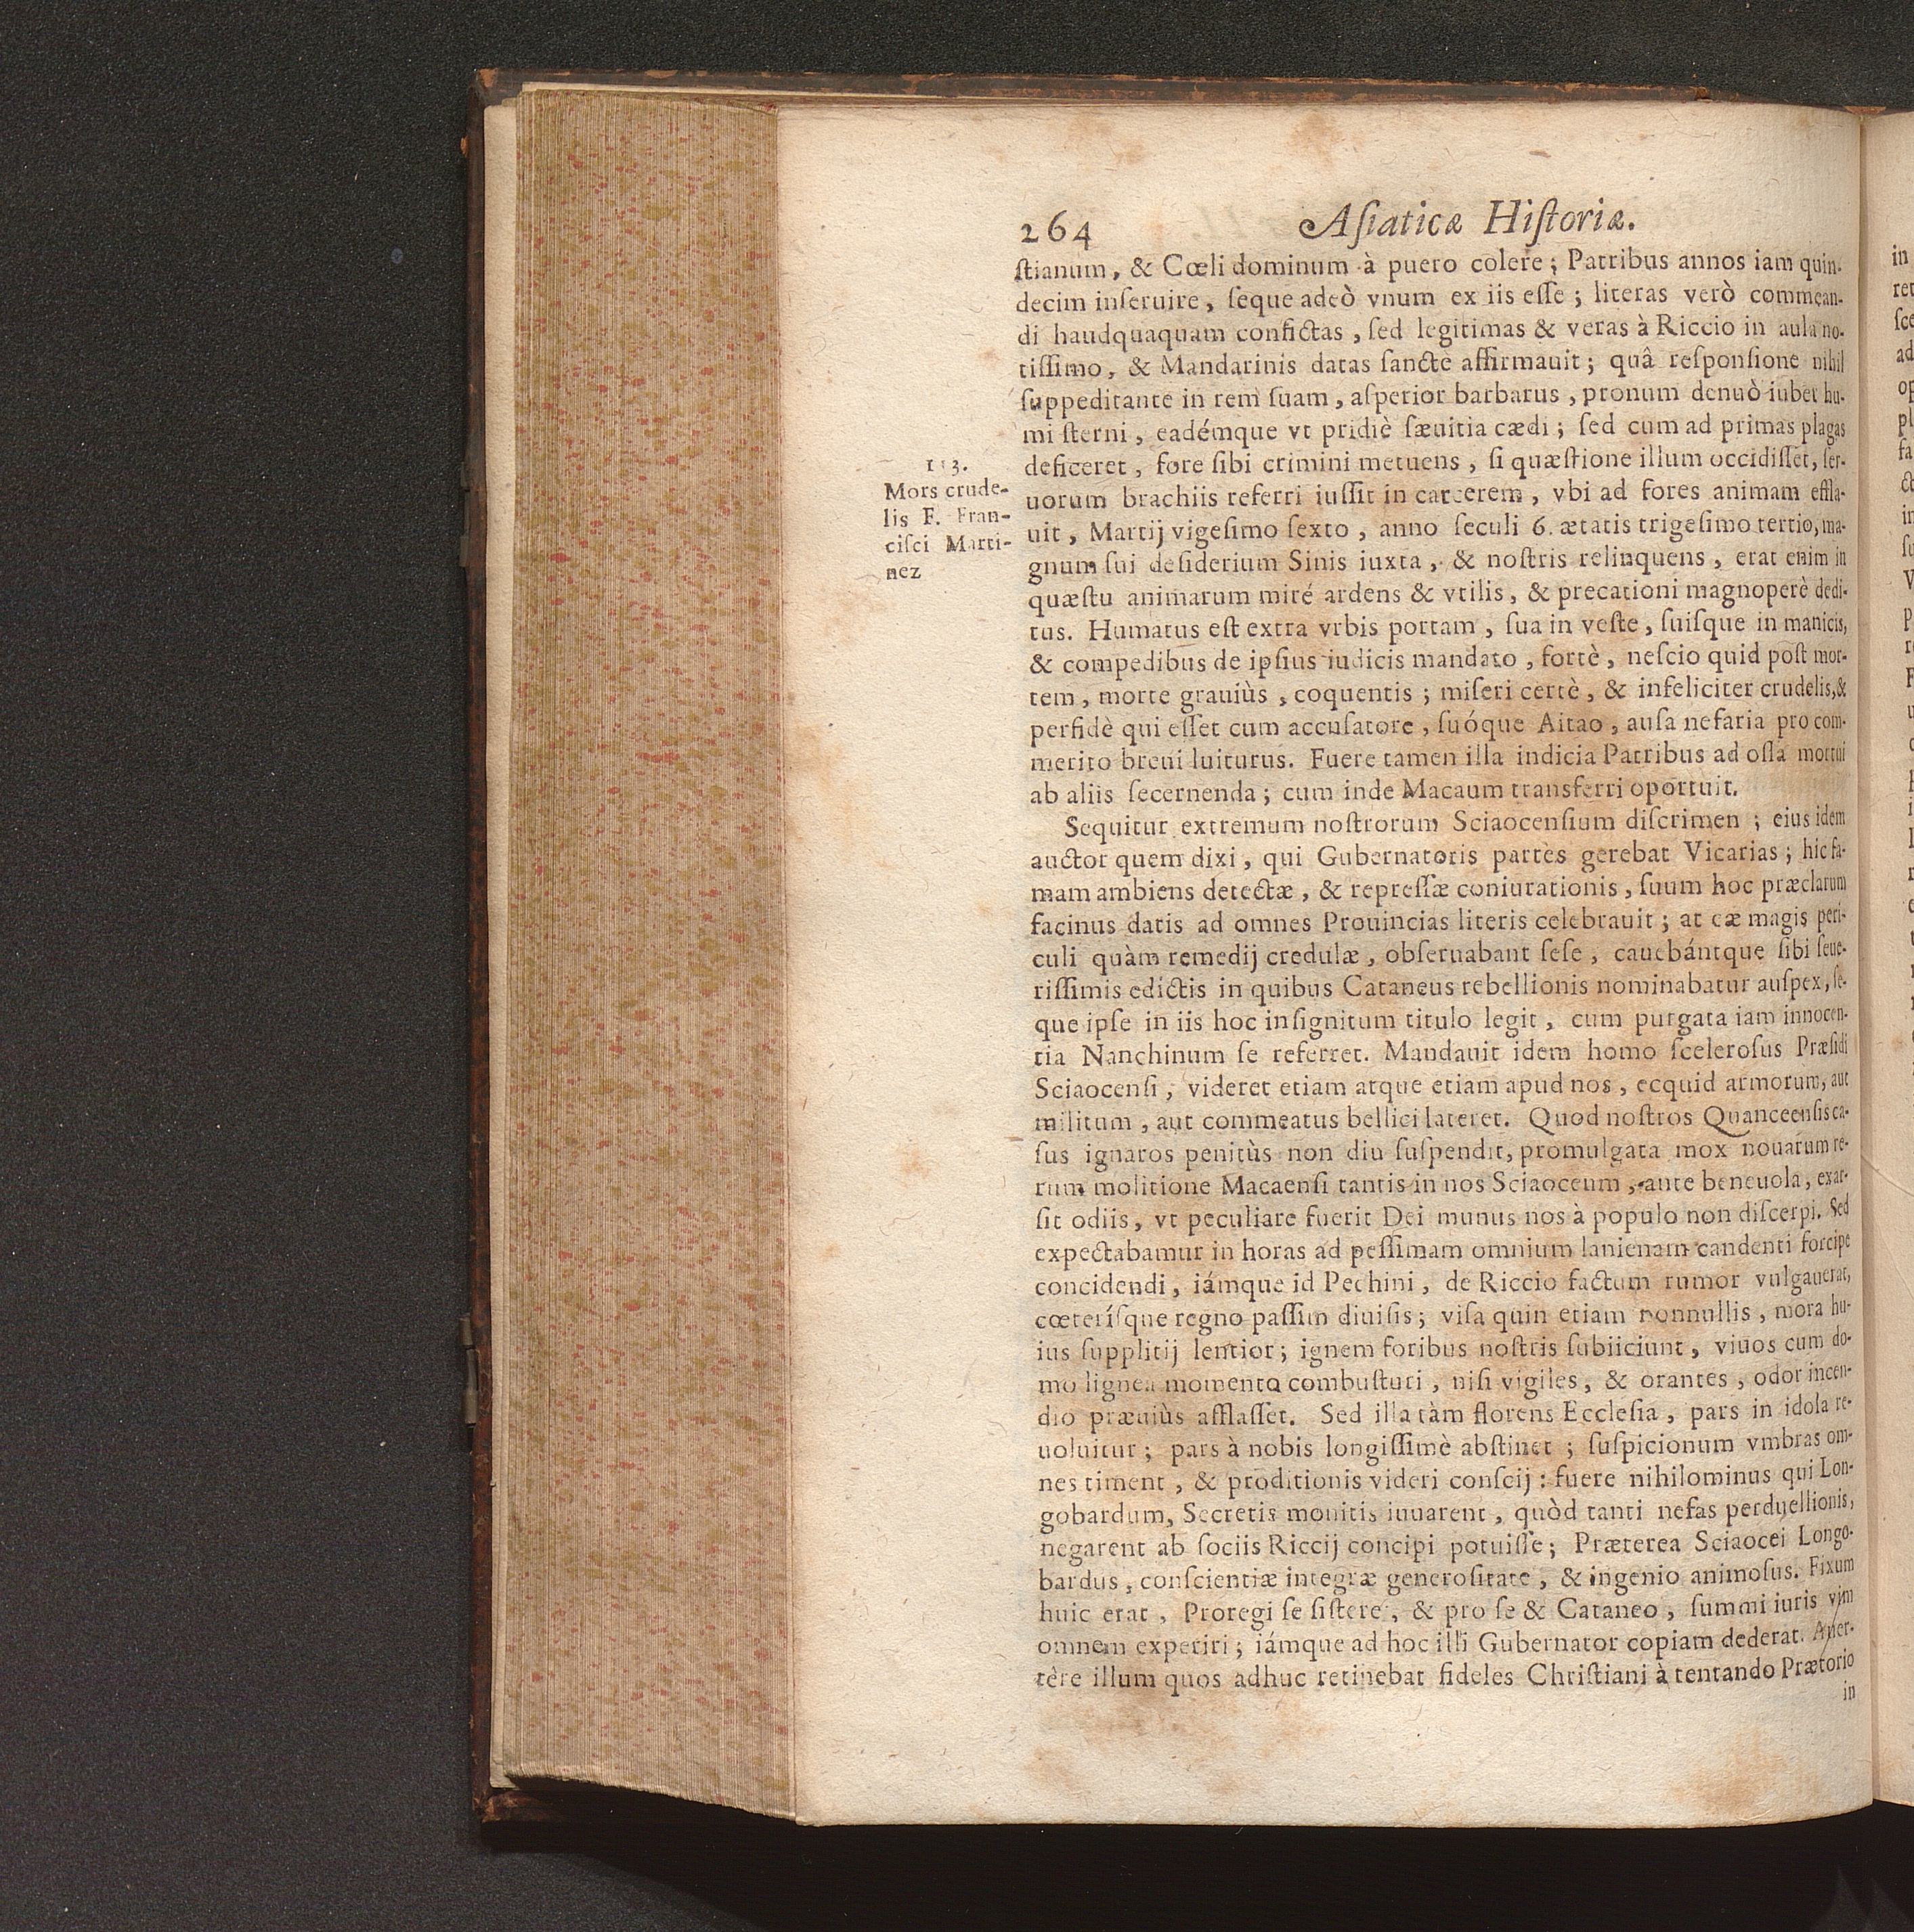 264
Asiaticæ Historiæ.
stianum, & Cœli dominum à puero colere; Patribus annos iam quin-
decim inseruire, seque adeò vnum ex iis esse; literas verò commean-
di haudquaquam confictas, sed legitimas & veras à Riccio in aula no-
tissimo, & Mandarinis datas sanctè affirmauit; quâ responsione nihil
suppeditante in rem suam, asperior barbarus, pronum denuò iubet hu-
mi sterni, eadémque vt pridiè sæuitia cædi; sed cum ad primas plagas
deficeret, fore sibi crimini metuens, si quæstione illum occidisset, ser-
uorum brachiis referri iussit in carcerem, vbi ad fores animam effla-
uit, Martij vigesimo sexto, anno seculi 6. ætatis trigesimo tertio, ma-
gnum sui desiderium Sinis iuxta, & nostris relinquens, erat enim in
quæstu animarum miré ardens & vtilis, & precationi magnoperè dedi-
tus. Humatus est extra vrbis portam, sua in veste, suisque in manicis,
& compedibus de ipsius iudicis mandato, fortè, nescio quid post mor-
tem, morte grauiùs, coquentis; miseri certè, & infeliciter crudelis, &
perfidè qui esset cum accusatore, suóque Aitao, ausa nefaria pro com-
merito breui luiturus. Fuere tamen illa indicia Patribus ad ossa mortui
ab aliis secernenda; cum inde Macaum transferri oportuit.
113.
Mors crude-
lis F. Fran-
cisci Marti-
nez
Sequitur extremum nostrorum Sciaocensium discrimen; eius idem
auctor quem dixi, qui Gubernatoris partes gerebat Vicarias; hic fa-
mam ambiens detectæ, & repressæ coniurationis, suum hoc præclarum
facinus datis ad omnes Prouincias literis celebrauit; at eæ magis peri-
culi quàm remedij credulæ, obseruabant sese, cauebántque sibi seue-
rissimis edictis in quibus Cataneus rebellionis nominabatur auspex, se-
que ipse in iis hoc insignitum titulo legit, cum purgata iam innocen-
tia Nanchinum se referret. Mandauit idem homo scelerosus Præsidi
Sciaocensi, videret etiam atque etiam apud nos, ecquid armorum, aut
militum, aut commeatus bellici lateret. Quod nostros Quanceensis ca-
sus ignaros penitùs non diu suspendit, promulgata mox nouarum re-
rum molitione Macaensi tantis in nos Sciaoceum, ante beneuola, exar-
sit odiis, vt peculiare fuerit Dei munus nos à populo non discerpi. Sed
expectabamur in horas ad pessimam omnium lanienam candenti forcipe
concidendi, iámque id Pechini, de Riccio factum rumor vulgauerat,
cœterísque regno passim diuisis; visa quin etiam nonnullis, mora hu-
ius supplitij lentior; ignem foribus nostris subiiciunt, viuos cum do-
mo lignea momento combusturi, nisi vigiles, & orantes, odor incen-
dio præuiùs afflasset. Sed illa tàm florens Ecclesia, pars in idola re-
uoluitur; pars à nobis longissimè abstinet; suspicionum vmbras om-
nes timent, & proditionis videri conscij: fuere nihilominus qui Lon-
gobardum, Secretis monitis iuuarent, quòd tanti nefas perduellionis,
negarent ab sociis Riccij concipi potuisse; Præterea Sciaocei Longo-
bardus, conscientiæ integræ generositate, & ingenio animosus. Fixum
huic erat, Proregi se sistere, & pro se & Cataneo, summi iuris vim
omnem experiri; iámque ad hoc illi Gubernator copiam dederat. Auer-
tère illum quos adhuc retinebat fideles Christiani à tentando Prætorio
in